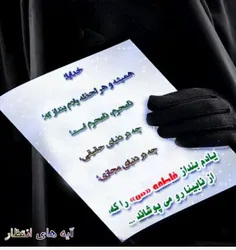 خدایا!
همیشه و هر لحظه یادم بنداز که؛
نامحرم، نامحرم است؛
چه در دنیای حقیقی،
چه در دنیای مجازی؛
یادم بنداز فاطمه «س» را که،
از نابینا رو می پوشاند ..
آیه های انتظار